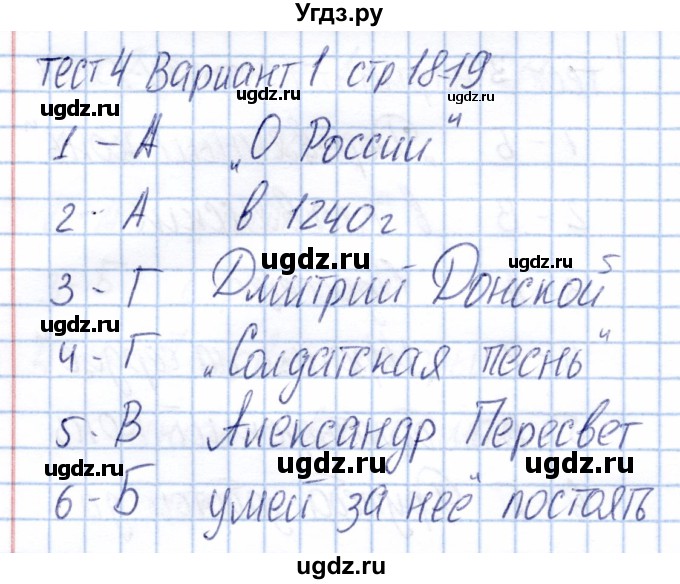 Угдз.ру
тест 4 Вариант 1 стр 18-19
ugdz.ru ugdz.ru ugdz.ru
1 - А „О России"
2 - А в 1240 г
ugdz.ru ugdz.ru
3 - Г Дмитрий Донской
ugdz.ru ugdz.ru
4 - Г „Солдатская песнь"
5 - В Александр Пересвет
ugdz.ru ugdz.ru ugdz.ru
6 - Б умей за неё постоять
ugdz.ru ugdz.ru
ugdz.ru